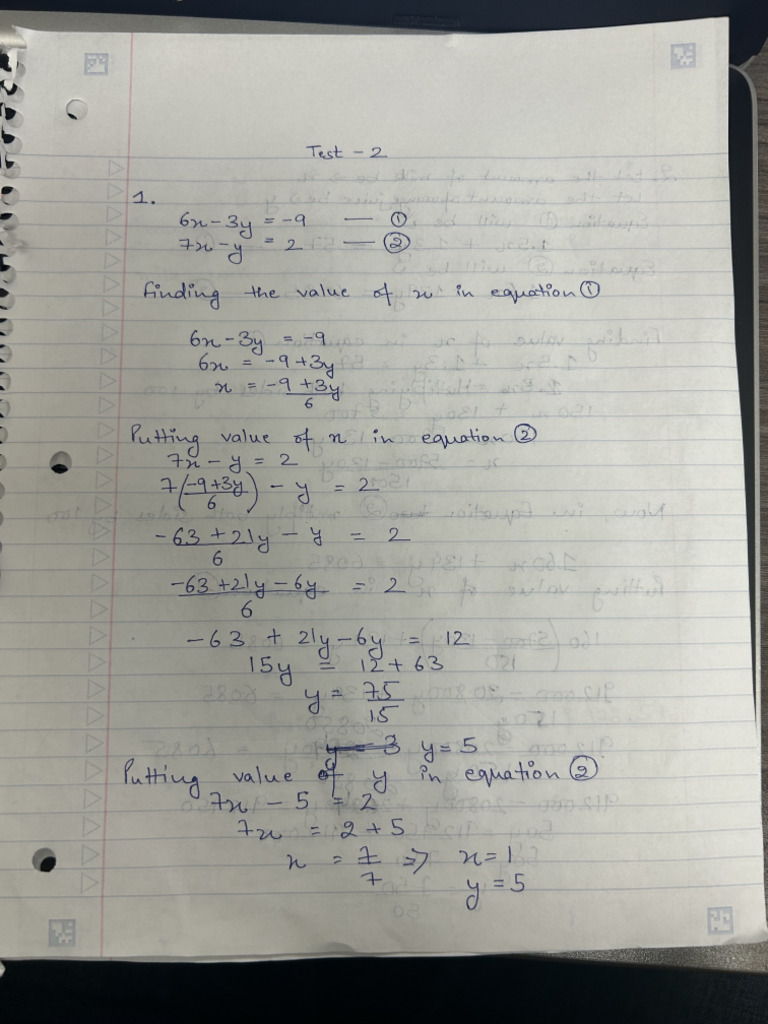 Test - 2
1.
6x - 3y = -9 — ①
7x - y = 2 — ②
Finding the value of x in equation ①
6x - 3y = -9
6x = -9 + 3y
x = \frac{-9 + 3y}{6}
Putting value of x in equation ②
7x - y = 2
7(\frac{-9+3y}{6}) - y = 2
\frac{-63 + 21y}{6} - y = 2
\frac{-63 + 21y - 6y}{6} = 2
-63 + 21y - 6y = 12
15y = 12 + 63
y = \frac{75}{15}
y = 3 y = 5
Putting value of y in equation ②
7x - 5 = 2
7x = 2 + 5
x = \frac{7}{7} => x = 1
y = 5